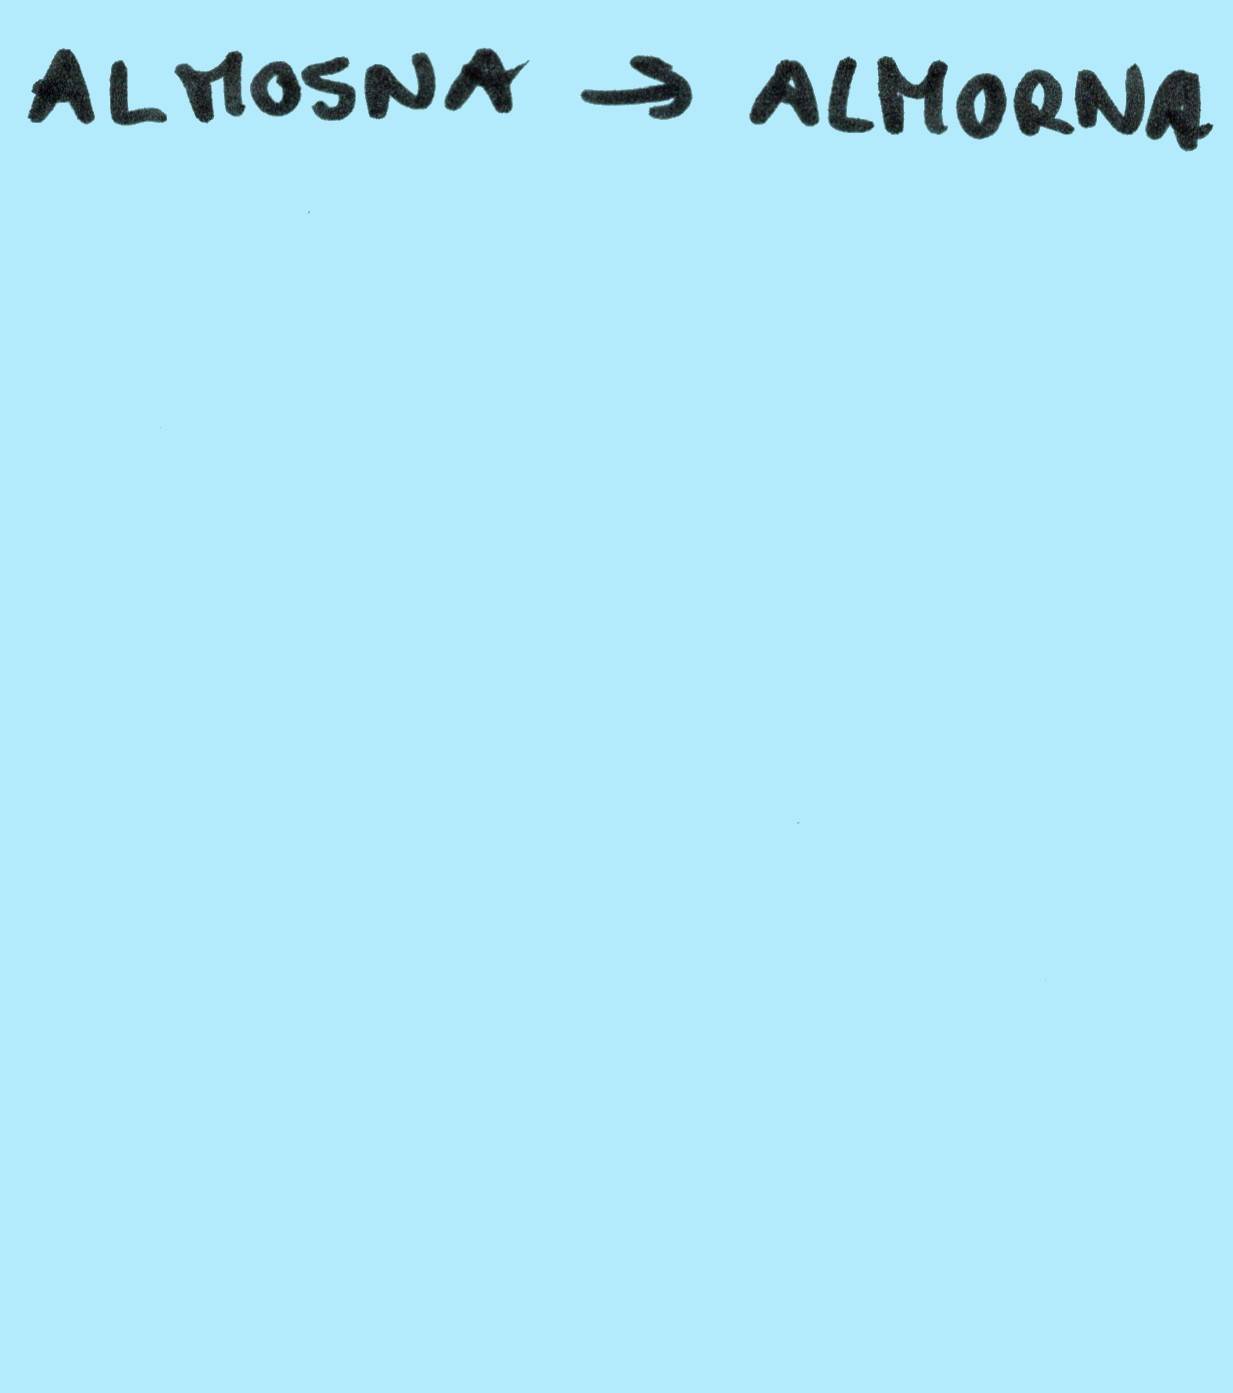 ALMOSNA → ALMORNA